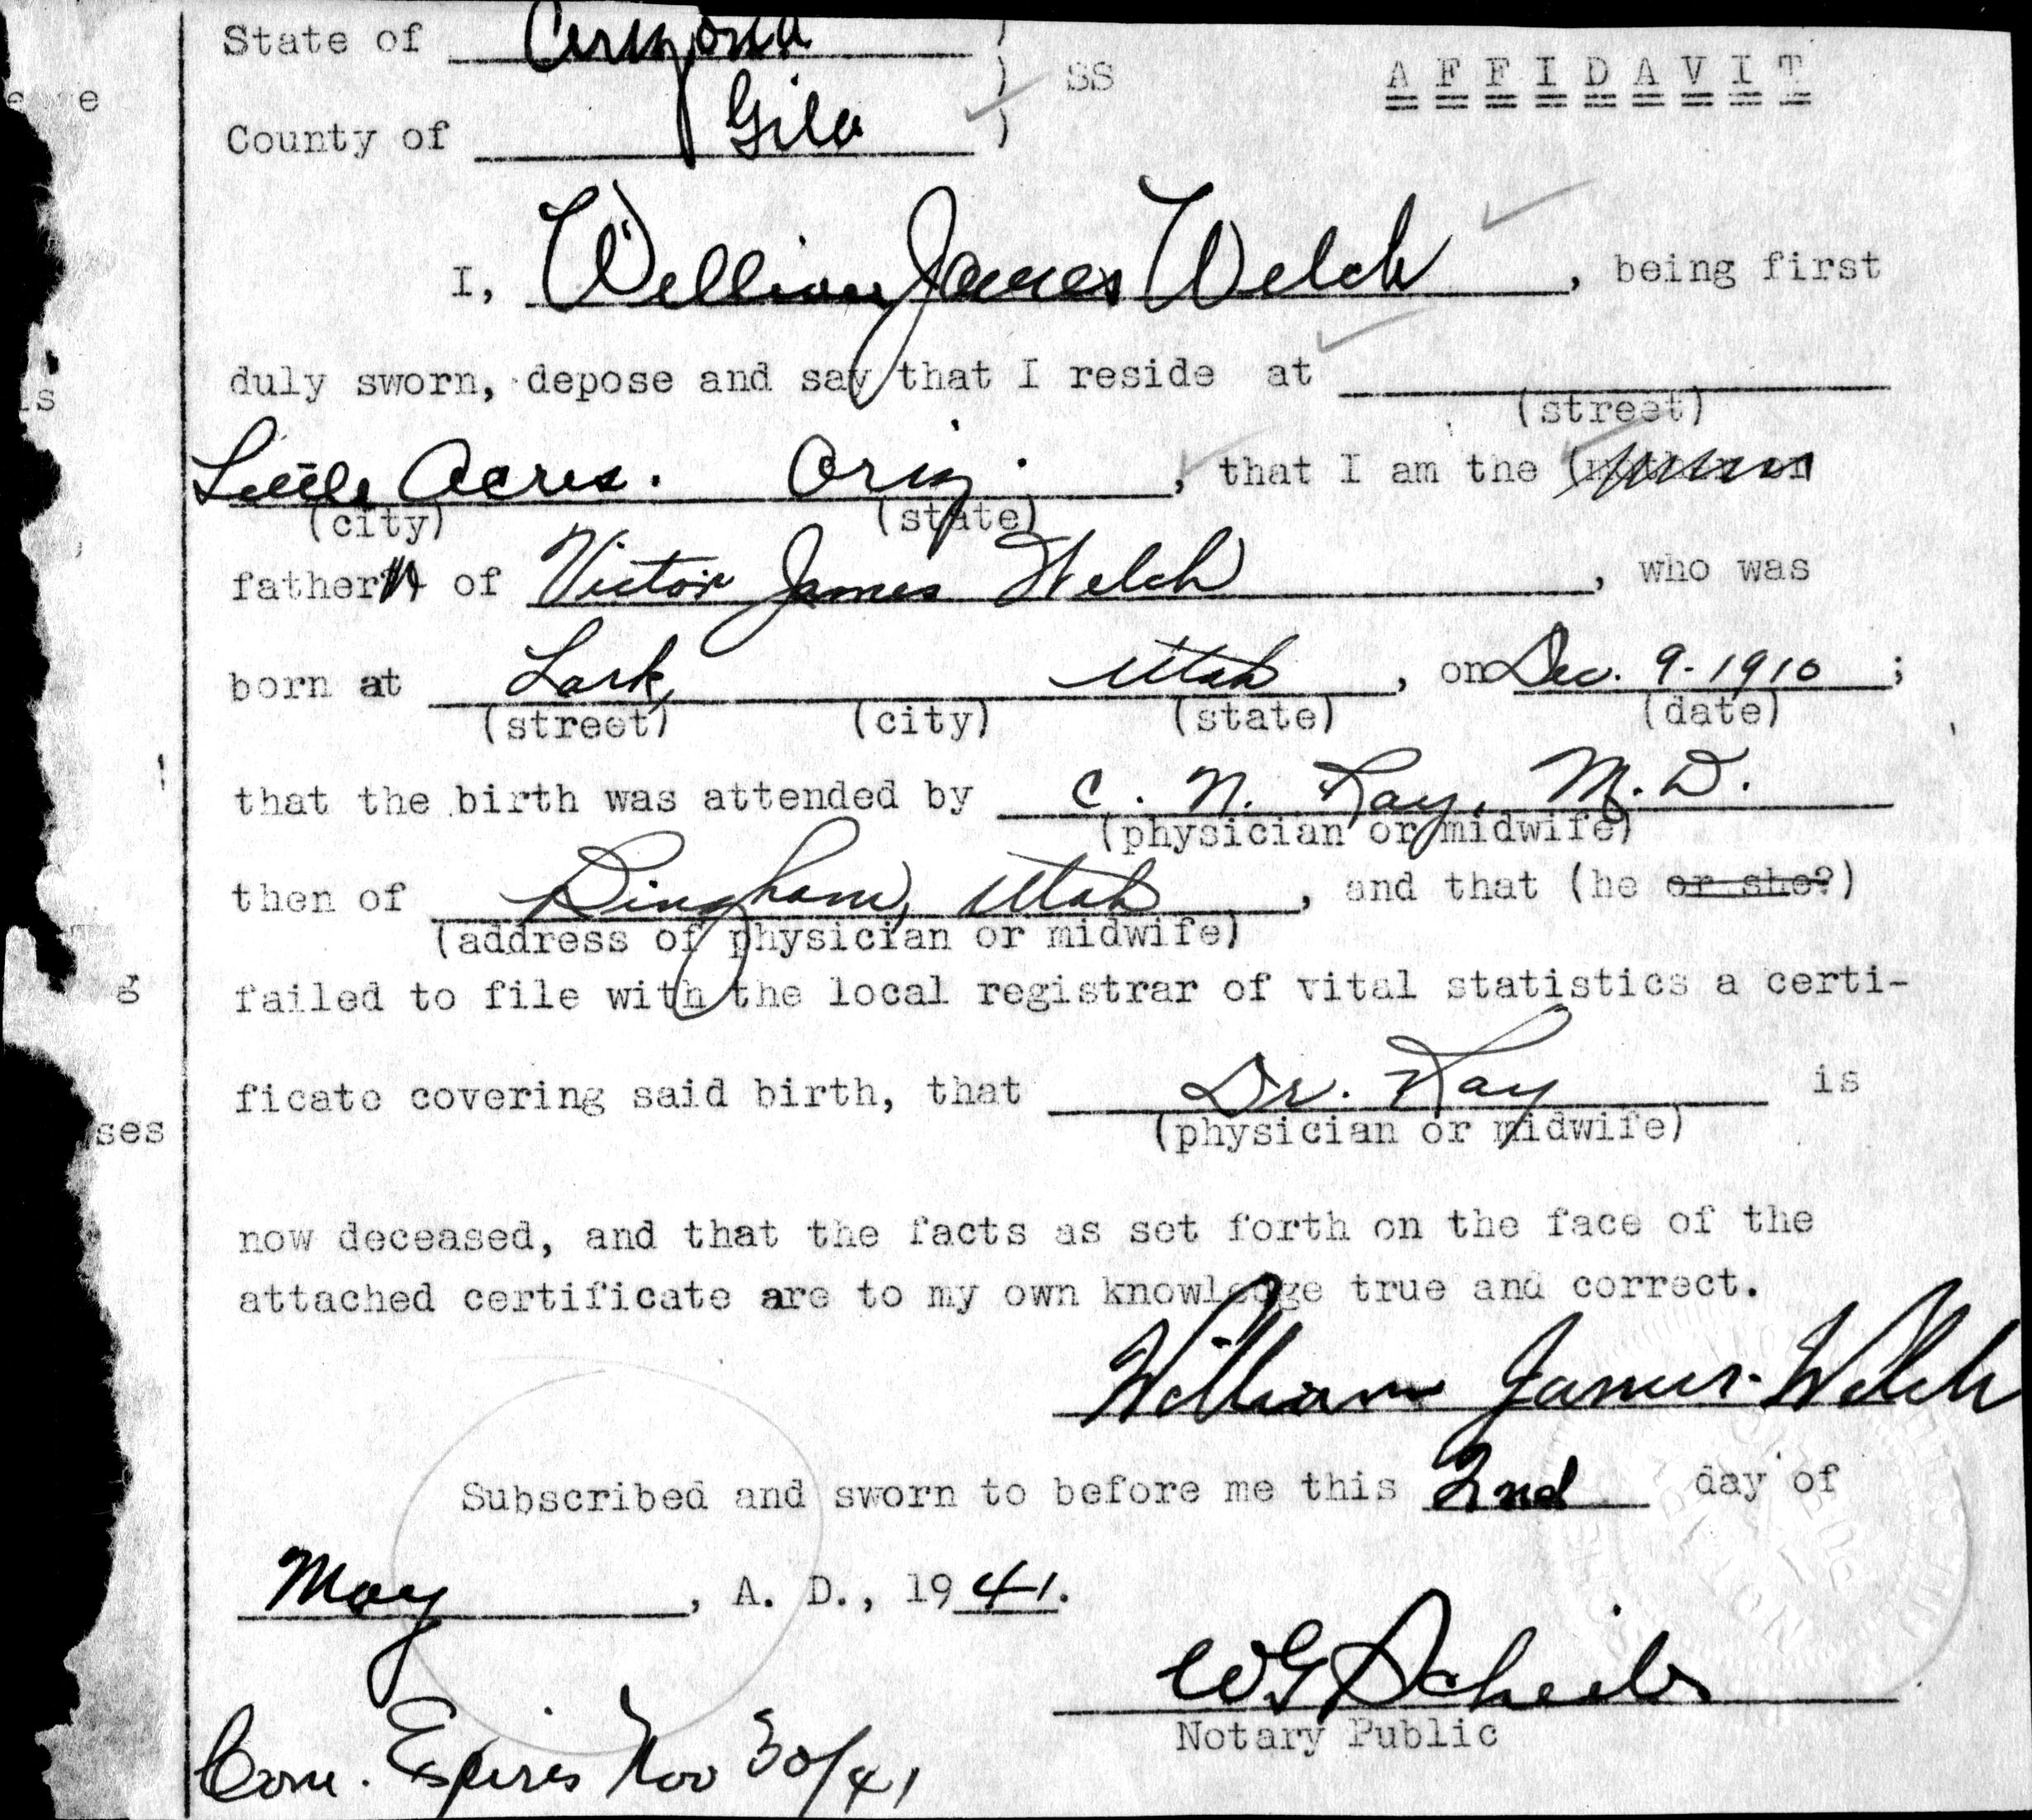 State of Arizona )
) SS A F F I D A V I T
County of Gila )
I, William James Welch, being first
duly sworn, depose and say that I reside at
(street)
Little Acres. Ariz., that I am the
(city) (state)
father of Victor James Welch, who was
born at Lark, Utah, on Dec. 9-1910;
(street) (city) (state) (date)
that the birth was attended by C. N. Ray, M.D.
(physician or midwife)
then of Bingham, Utah, and that (he or she?)
(address of physician or midwife)
failed to file with the local registrar of vital statistics a certi-
ficate covering said birth, that Dr. Ray is
(physician or midwife)
now deceased, and that the facts as set forth on the face of the
attached certificate are to my own knowledge true and correct.
William James Welch
Subscribed and sworn to before me this 2nd day of
May, A. D., 1941.
WG
Notary Public
Com. Expires Nov 30/41
g
ses